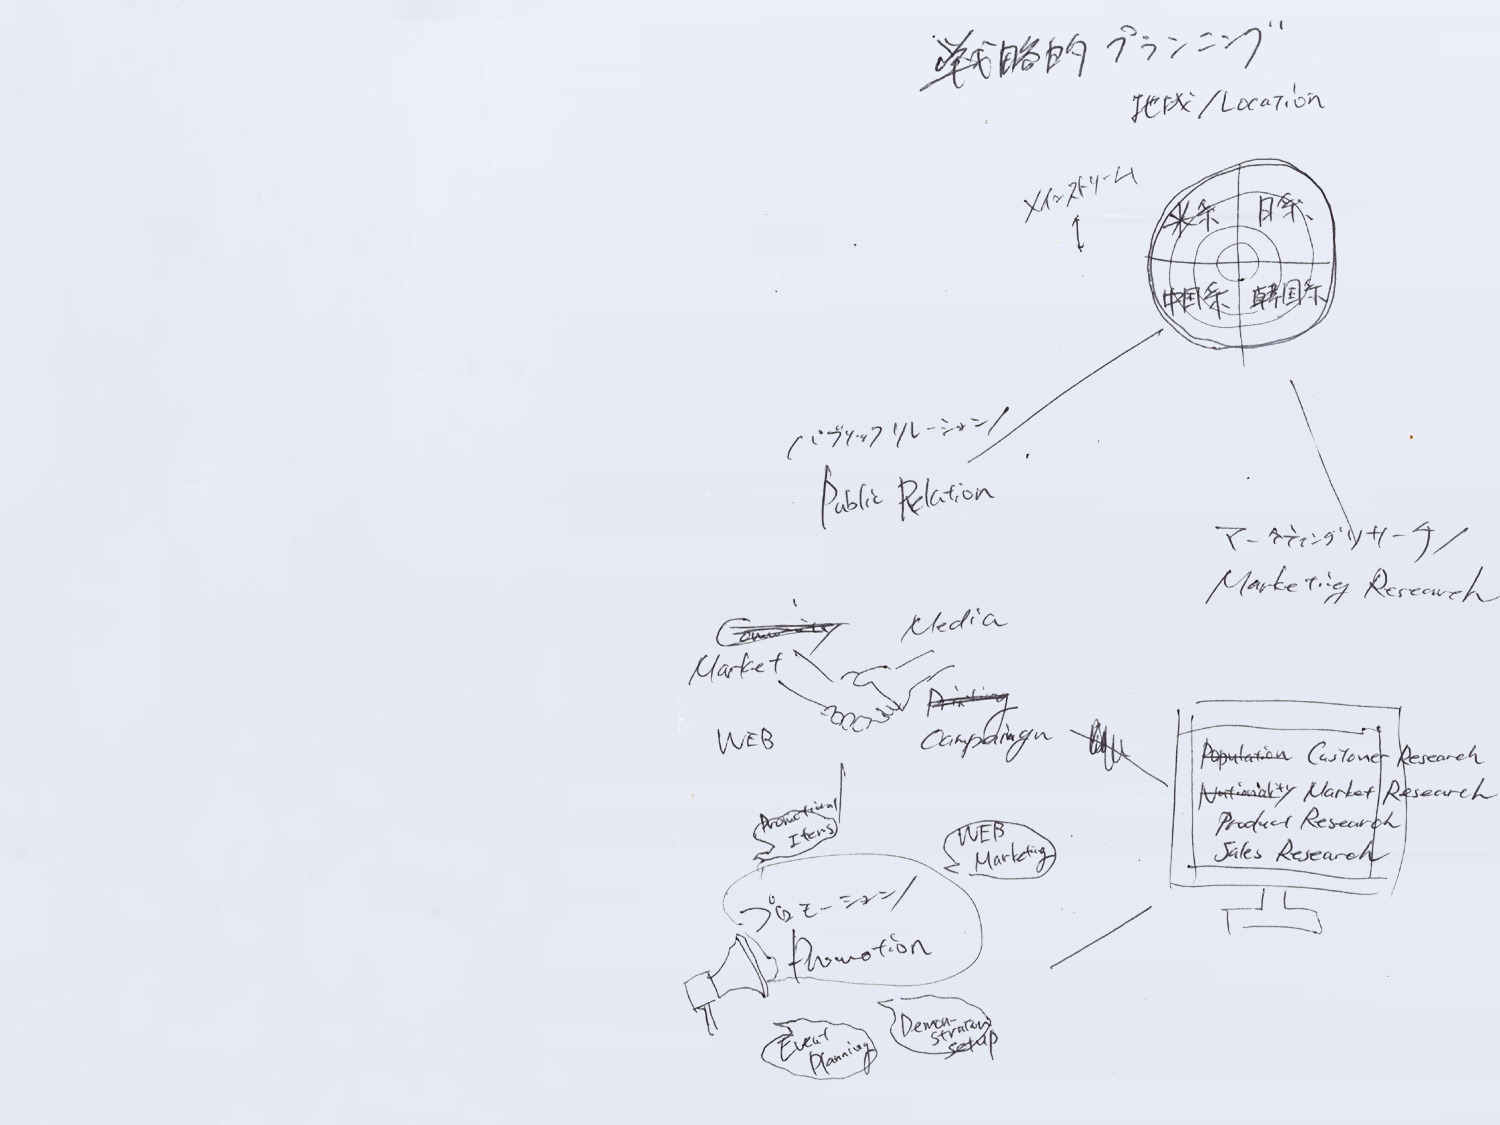 戦略的 プランニング
地域/Location
メインストリーム
米系 日系
中国系 韓国系
パブリックリレーション/
Public Relation
マーケティングリサーチ/
Marketing Research
Community
Market
Media
Printing
WEB
Campaign
Population Customer Research
Nationality Market Research
Product Research
Sales Research
Promotional
Items
WEB
Marketing
プロモーション/
Promotion
Event
Planning
Demon-
stration
setup